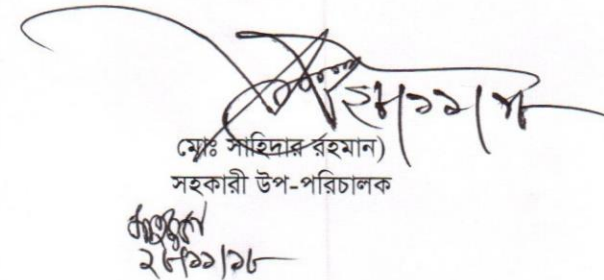 ২৮/১১/১৮
মোঃ সাহিদার রহমান)
সহকারী উপ-পরিচালক
২৮/১১/১৮